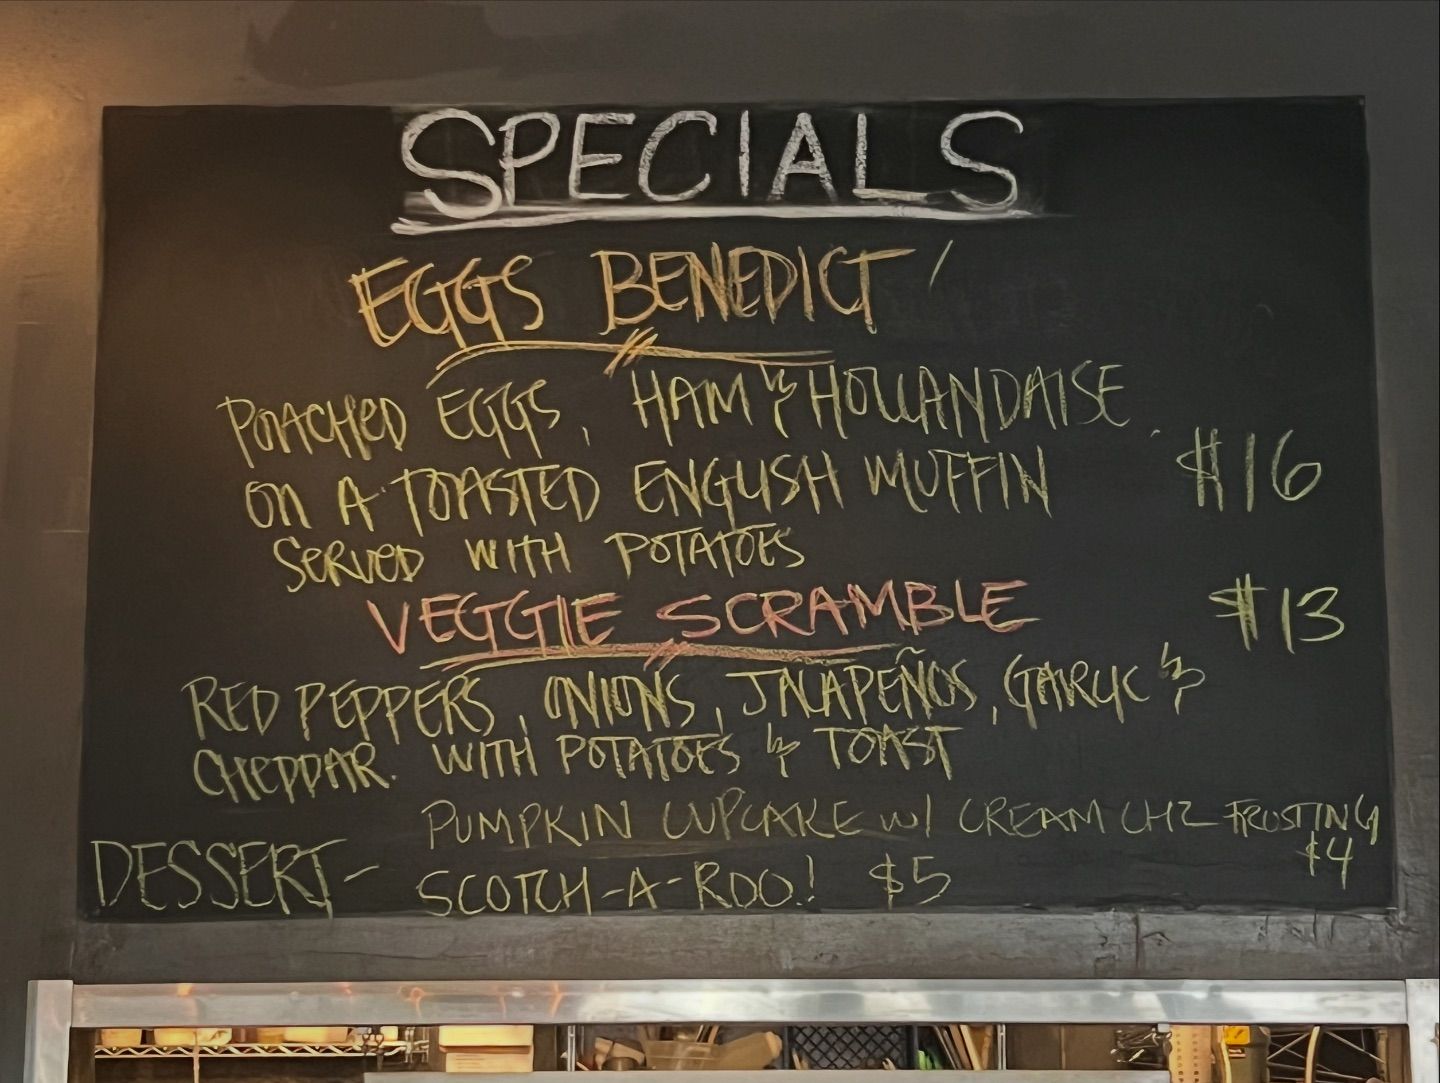 SPECIALS
EGGS BENEDICT
POACHED EGGS, HAM & HOLLANDAISE
ON A TOASTED ENGLISH MUFFIN $16
SERVED WITH POTATOES
VEGGIE SCRAMBLE $13
RED PEPPERS, ONIONS, JALAPEÑOS, GARLIC &
CHEDDAR. WITH POTATOES & TOAST
PUMPKIN CUPCAKE w/ CREAM CHZ FROSTING
$4
DESSERT- SCOTCH-A-ROO! $5